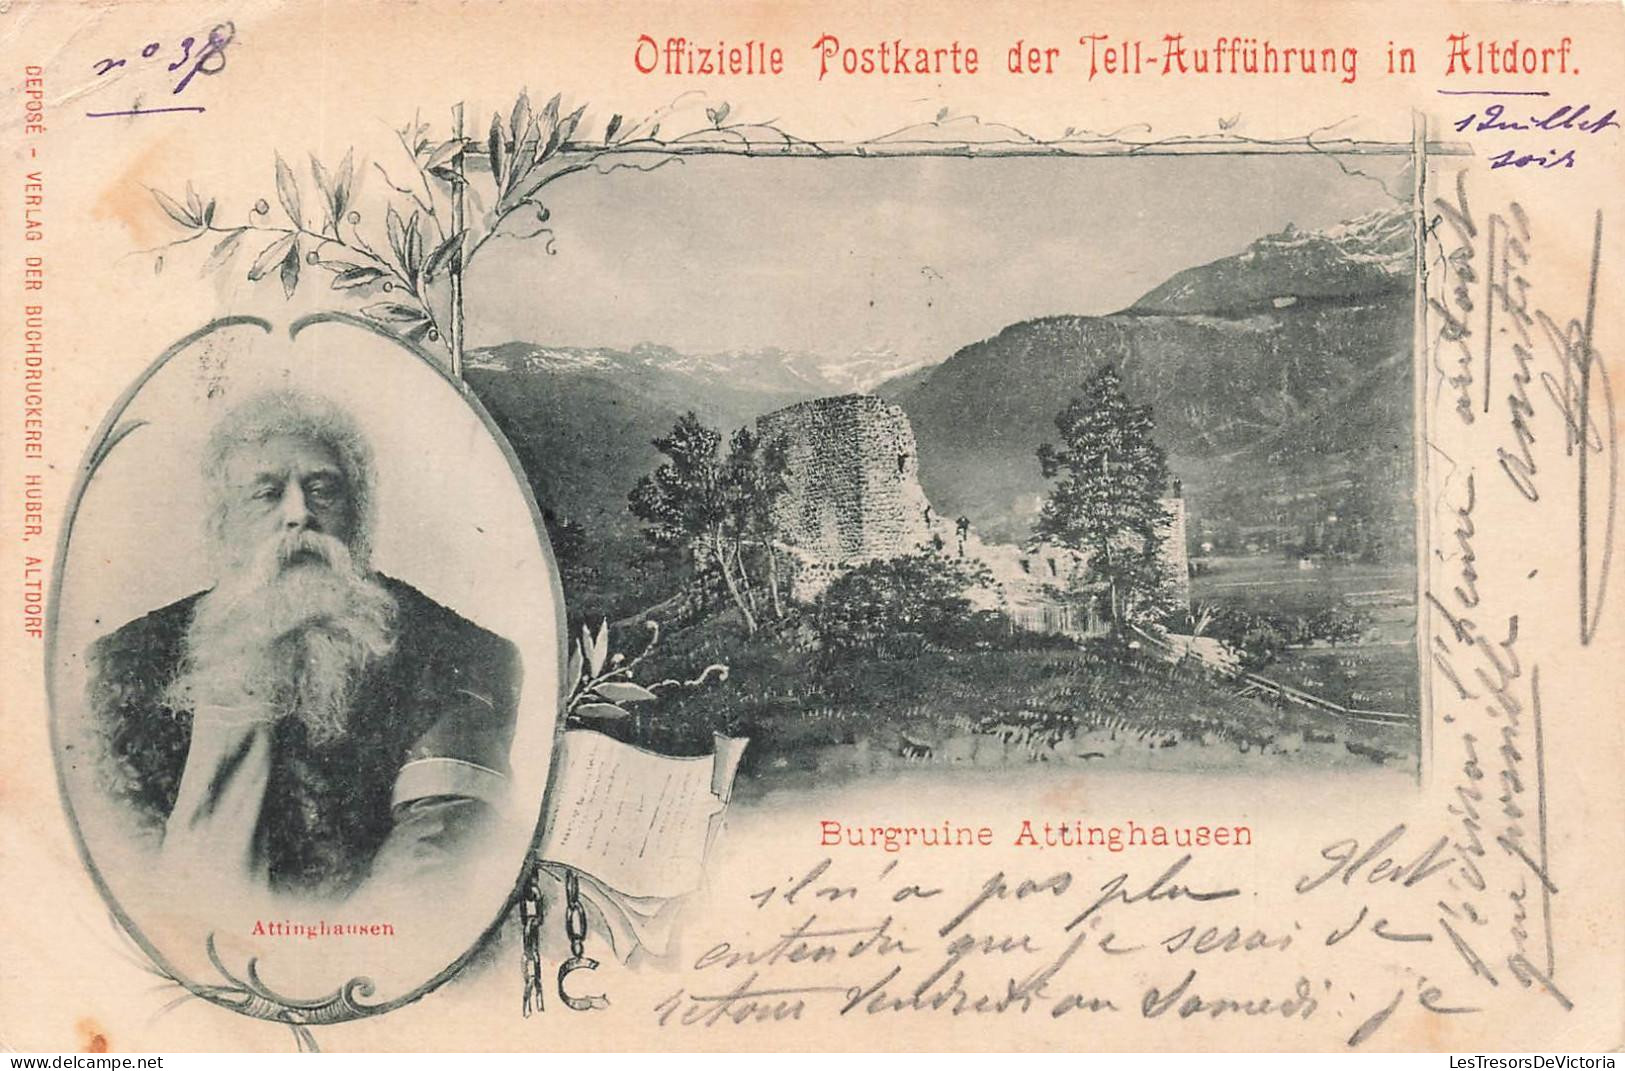 n° 38
Offizielle Postkarte der Tell-Aufführung in Altdorf.
1 Juillet
soir
DEPOSÉ - VERLAG DER BUCHDRUCKEREI HUBER, ALTDORF
Attinghausen
Burgruine Attinghausen
il n'a pas plu. Il est
entendu que je serai de
retour Vendredi ou Samedi: je
t'écrirai l'heure autant
que possible.
amitiés
LesTresorsDeVictoria